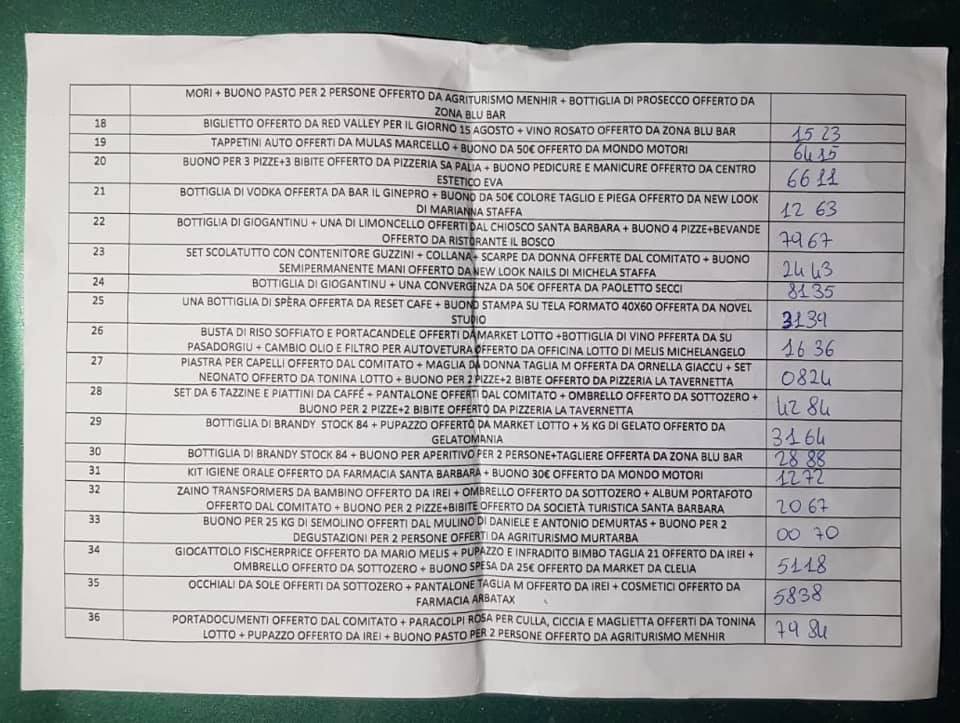 MORI + BUONO PASTO PER 2 PERSONE OFFERTO DA AGRITURISMO MENHIR + BOTTIGLIA DI PROSECCO OFFERTO DA
ZONA BLU BAR
18 BIGLIETTO OFFERTO DA RED VALLEY PER IL GIORNO 15 AGOSTO + VINO ROSATO OFFERTO DA ZONA BLU BAR 1523
19 TAPPETINI AUTO OFFERTI DA MULAS MARCELLO + BUONO DA 50€ OFFERTO DA MONDO MOTORI 6415
20 BUONO PER 3 PIZZE+3 BIBITE OFFERTO DA PIZZERIA SA PALIA + BUONO PEDICURE E MANICURE OFFERTO DA CENTRO
ESTETICO EVA 6611
21 BOTTIGLIA DI VODKA OFFERTA DA BAR IL GINEPRO + BUONO DA 50€ COLORE TAGLIO E PIEGA OFFERTO DA NEW LOOK
DI MARIANNA STAFFA 12 63
22 BOTTIGLIA DI GIOGANTINU + UNA DI LIMONCELLO OFFERTI DAL CHIOSCO SANTA BARBARA + BUONO 4 PIZZE+BEVANDE
OFFERTO DA RISTORANTE IL BOSCO 7967
23 SET SCOLATUTTO CON CONTENITORE GUZZINI + COLLANA+ SCARPE DA DONNA OFFERTE DAL COMITATO + BUONO
SEMIPERMANENTE MANI OFFERTO DA NEW LOOK NAILS DI MICHELA STAFFA 2443
24 BOTTIGLIA DI GIOGANTINU + UNA CONVERGENZA DA 50€ OFFERTA DA PAOLETTO SECCI 8135
25 UNA BOTTIGLIA DI SPÈRA OFFERTA DA RESET CAFE + BUONO STAMPA SU TELA FORMATO 40X60 OFFERTA DA NOVEL
STUDIO 3139
26 BUSTA DI RISO SOFFIATO E PORTACANDELE OFFERTI DA MARKET LOTTO +BOTTIGLIA DI VINO PFFERTA DA SU
PASADORGIU + CAMBIO OLIO E FILTRO PER AUTOVETURA OFFERTO DA OFFICINA LOTTO DI MELIS MICHELANGELO 1636
27 PIASTRA PER CAPELLI OFFERTO DAL COMITATO + MAGLIA DA DONNA TAGLIA M OFFERTA DA ORNELLA GIACCU + SET
NEONATO OFFERTO DA TONINA LOTTO + BUONO PER 2 PIZZE+2 BIBTE OFFERTO DA PIZZERIA LA TAVERNETTA 0824
28 SET DA 6 TAZZINE E PIATTINI DA CAFFÉ + PANTALONE OFFERTI DAL COMITATO + OMBRELLO OFFERTO DA SOTTOZERO +
BUONO PER 2 PIZZE+2 BIBITE OFFERTO DA PIZZERIA LA TAVERNETTA 4284
29 BOTTIGLIA DI BRANDY STOCK 84 + PUPAZZO OFFERTO DA MARKET LOTTO + ½ KG DI GELATO OFFERTO DA
GELATOMANIA 3164
30 BOTTIGLIA DI BRANDY STOCK 84 + BUONO PER APERITIVO PER 2 PERSONE+TAGLIERE OFFERTA DA ZONA BLU BAR 2888
31 KIT IGIENE ORALE OFFERTO DA FARMACIA SANTA BARBARA + BUONO 30€ OFFERTO DA MONDO MOTORI 1272
32 ZAINO TRANSFORMERS DA BAMBINO OFFERTO DA IREI + OMBRELLO OFFERTO DA SOTTOZERO + ALBUM PORTAFOTO
OFFERTO DAL COMITATO + BUONO PER 2 PIZZE+BIBITE OFFERTO DA SOCIETÀ TURISTICA SANTA BARBARA 2067
33 BUONO PER 25 KG DI SEMOLINO OFFERTI DAL MULINO DI DANIELE E ANTONIO DEMURTAS + BUONO PER 2
DEGUSTAZIONI PER 2 PERSONE OFFERTI DA AGRITURISMO MURTARBA 00 70
34 GIOCATTOLO FISCHERPRICE OFFERTO DA MARIO MELIS + PUPAZZO E INFRADITO BIMBO TAGLIA 21 OFFERTO DA IREI +
OMBRELLO OFFERTO DA SOTTOZERO + BUONO SPESA DA 25€ OFFERTO DA MARKET DA CLELIA 5118
35 OCCHIALI DA SOLE OFFERTI DA SOTTOZERO + PANTALONE TAGLIA M OFFERTO DA IREI + COSMETICI OFFERTO DA
FARMACIA ARBATAX 5838
36 PORTADOCUMENTI OFFERTO DAL COMITATO + PARACOLPI ROSA PER CULLA, CICCIA E MAGLIETTA OFFERTI DA TONINA
LOTTO + PUPAZZO OFFERTO DA IREI + BUONO PASTO PER 2 PERSONE OFFERTO DA AGRITURISMO MENHIR 7984